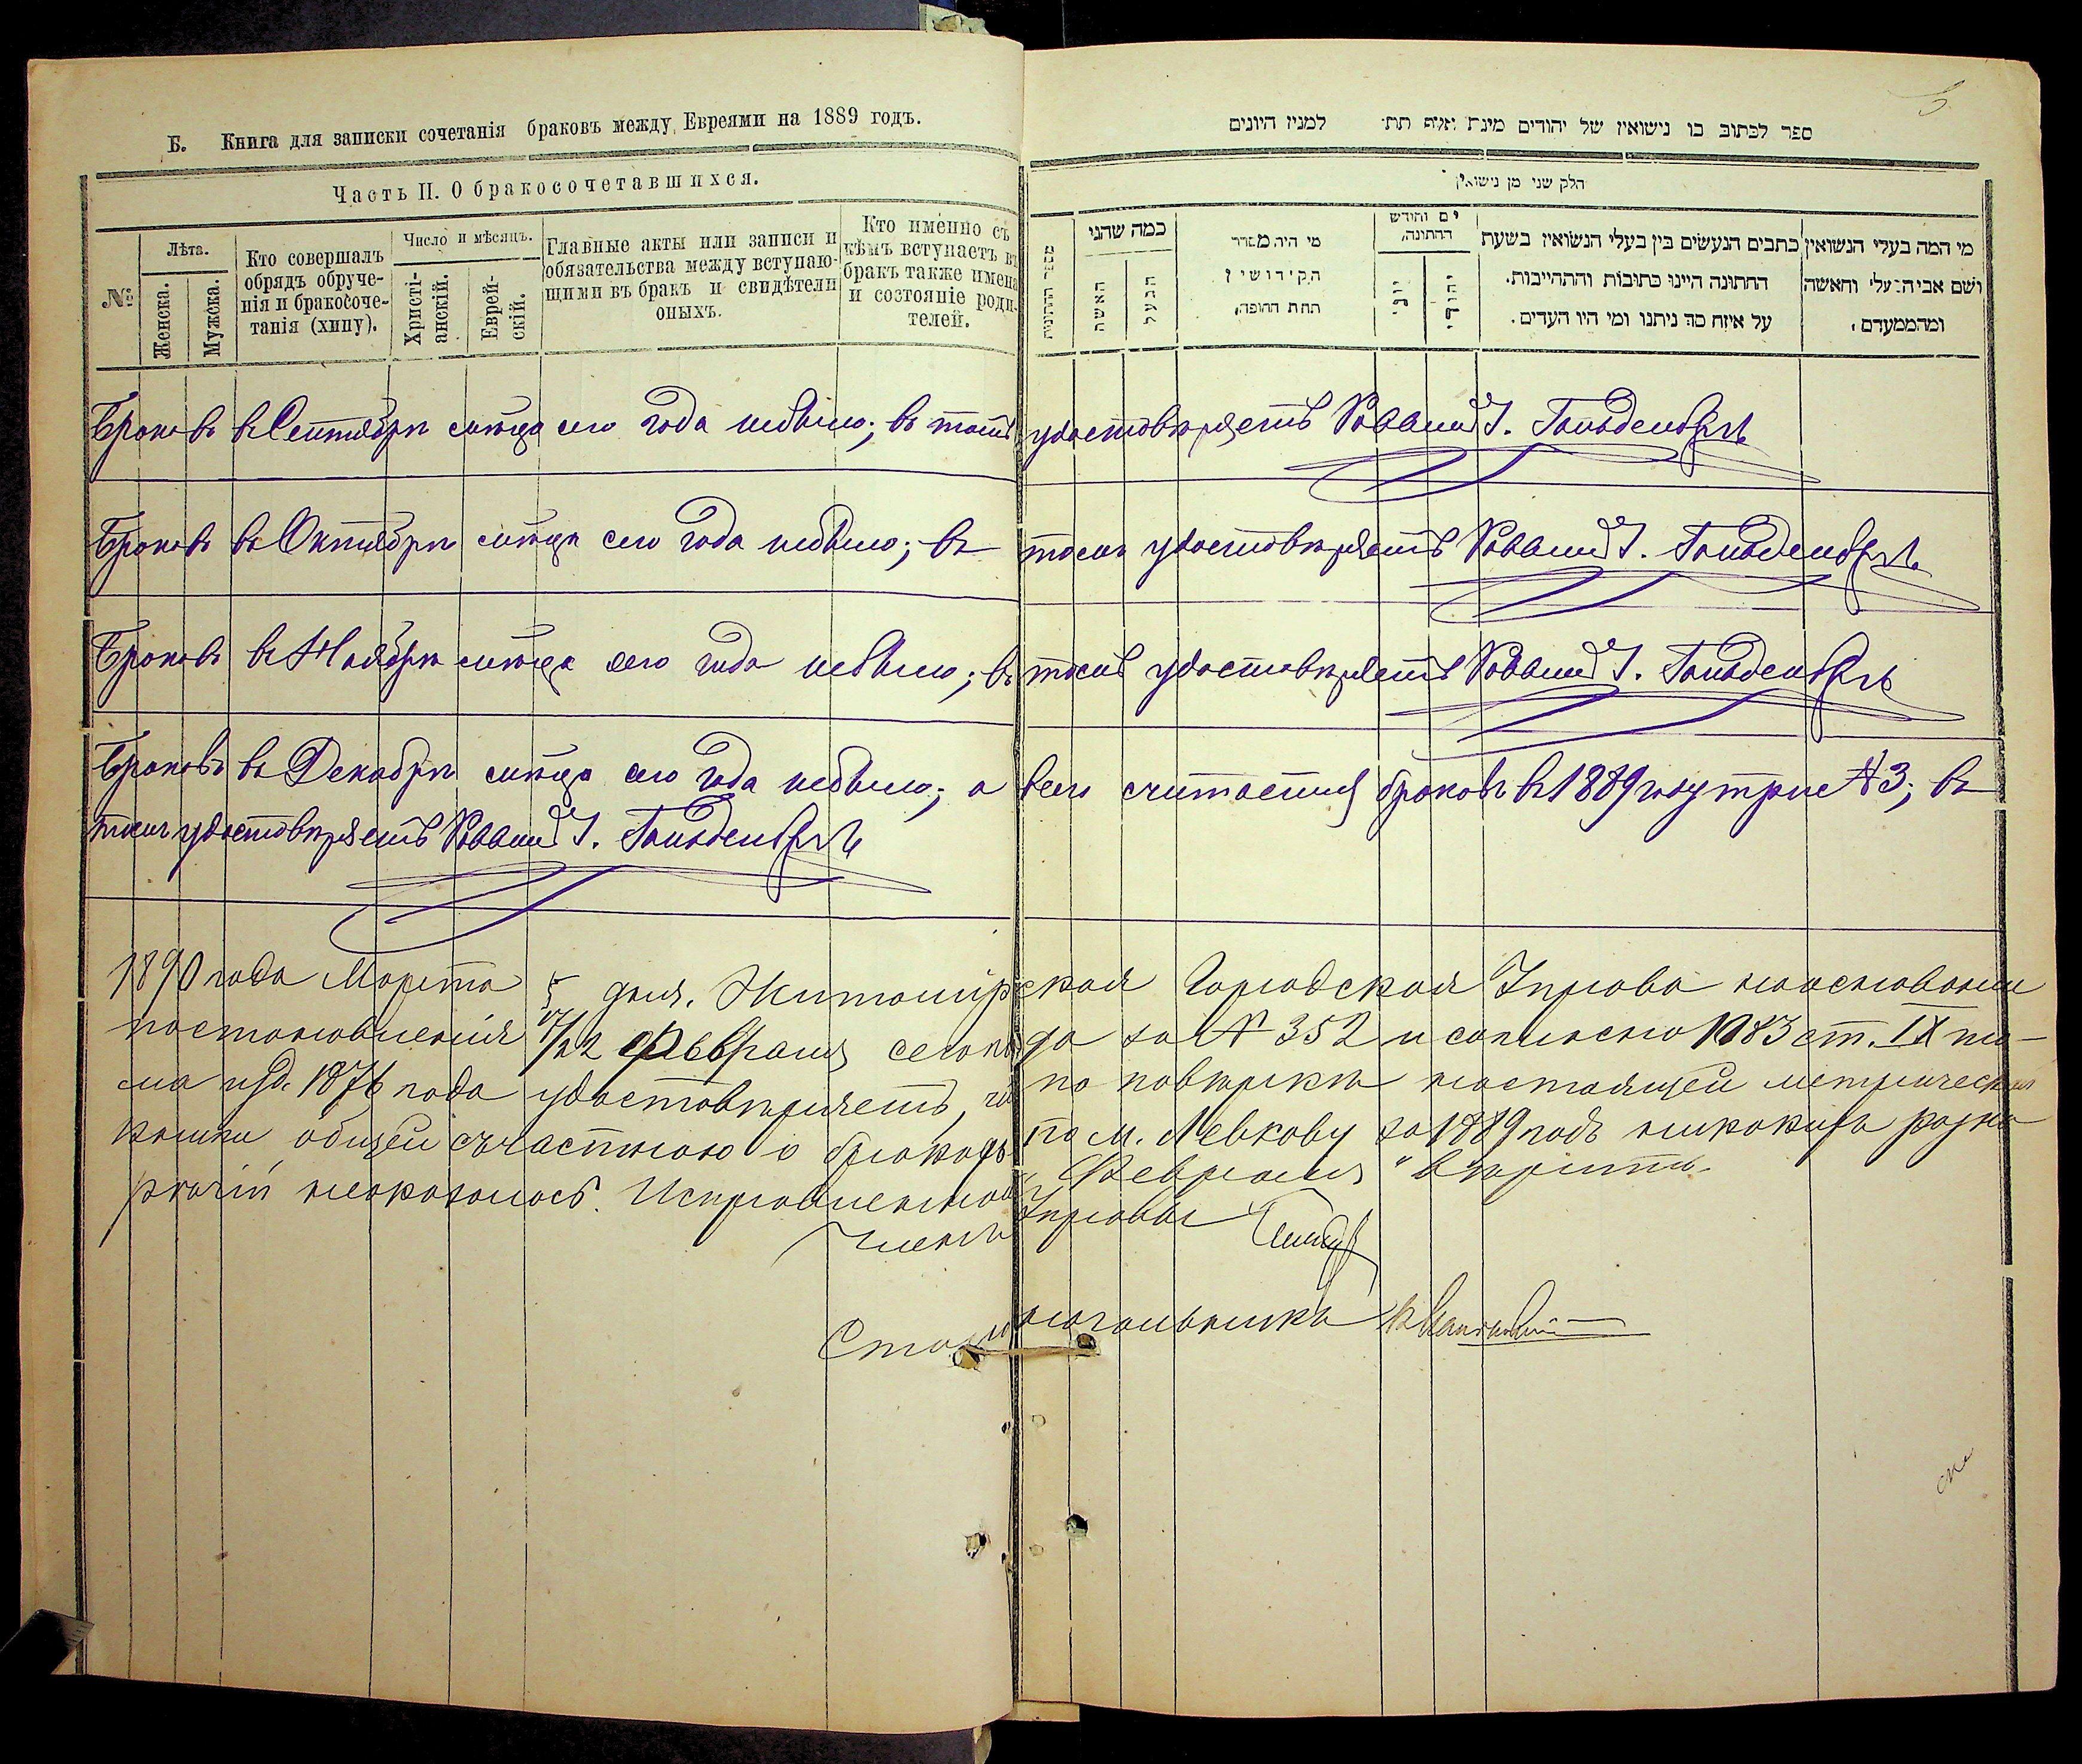 Б. Книга для записки сочетанія браковъ между Евреями на 1889 годъ.
Часть II. О бракосочетавшихся.
№
Лѣта.
Женска.
Мужска.
Кто совершалъ
обрядъ обруче-
нія и бракосоче-
танія (хипу).
Число и мѣсяцъ.
Христі-
анскій.
Еврей-
скій.
Главные акты или записи и
обязательства между вступаю-
щими въ бракъ и свидѣтели
оныхъ.
Кто именно съ
кѣмъ вступаетъ въ
бракъ также имена
и состояніе роди-
телей.
ספר לכתוב בו נישואין של יהודים למנין היונים
חלק שני מן נישואין
מי המה בעלי הנשואין
ושם אביה
ומהממעדם
כתבים הנעשים בין בעלי הנשואין בשעת
החתונה היינו כתובות והתחייבות.
על איזה סך ניתנו ומי היו העדים.
יום וחודש
החתונה
יהודי
יוני
מי היה מסדר
הקידושין
תחת החופה
כמה שהני
הבעל
האשה
Браковъ въ Сентябрѣ мѣсяцѣ сего года небыло; въ томъ удостовѣряетъ Раввинъ І. Гольденбергъ
Браковъ въ Октябрѣ мѣсяцѣ сего года небыло; въ томъ удостовѣряетъ Раввинъ І. Гольденбергъ
Браковъ въ Ноябрѣ мѣсяцѣ сего года небыло; въ томъ удостовѣряетъ Раввинъ І. Гольденбергъ
Браковъ въ Декабрѣ мѣсяцѣ сего года небыло; а всего считается браковъ въ 1889 году три № 3; въ
томъ удостовѣряетъ Раввинъ І. Гольденбергъ
1890 года Марта 5 дня. Житомірская Городская Управа на основаніи
постановленія /22 февраля сего года за № 352 и согласно 1083 ст. IX то-
ма изд. 1876 года удостовѣряетъ, что по повѣркѣ настоящей метрической
книги общей съ частною о бракахъ по м. Левкову за 1889 годъ никакихъ разно-
рѣчій неоказалось. Исправленному "Февраля" вѣрить.
Членъ Управы
Столоначальникъ